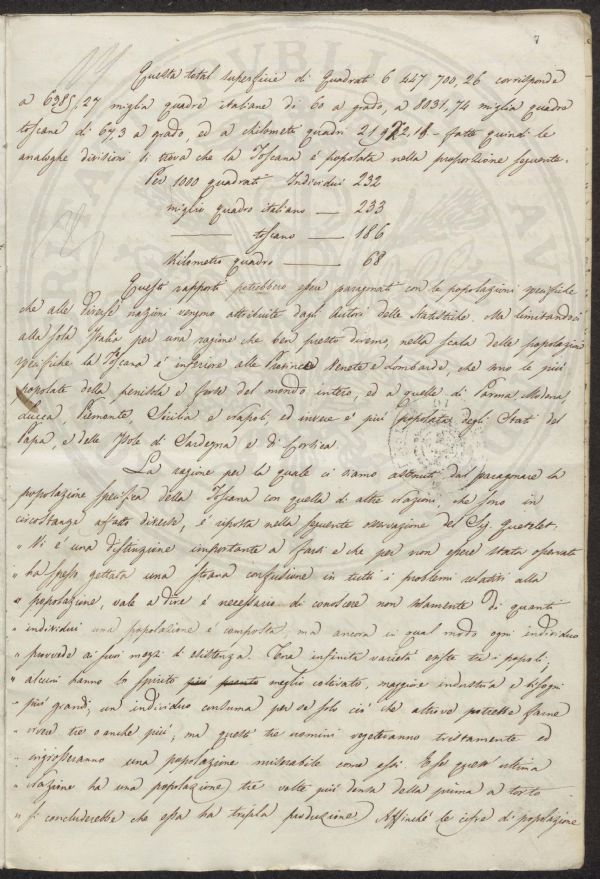 7
Questa total superficie di Quadrati 6 447 700, 26 corrisponde
a 6385,27 miglia quadre italiane di 60 a grado, a 8031,74 miglia quadre
toscane di 67,3 a grado, ed a chilometri quadri 21972,18 - fatte quindi le
analoghe divisioni si trova che la Toscana è popolata nella proporzione seguente.
Per 1000 quadrati Individui 232
miglio quadro italiano — 233
— toscano — 186
Kilometro quadro — 68
Questi rapporti potrebbero essere paragonati con le popolazioni specifiche
che alle diverse nazioni vengono attribuite dagli Autori delle Statistiche. Ma limitandoci
alla sola Italia per una ragione che ben presto diremo, nella scala delle popolazioni
specifiche la Toscana è inferiore alle Provincie Venete e Lombarde, che sono le più
popolate della penisola e forse del mondo intero, ed a quelle di Parma, Modena,
Lucca Piemonte, Sicilia e Napoli ed invece è più popolata degli Stati del
Papa, e delle Isole di Sardegna e di Corsica.
La ragione per la quale ci siamo astenuti dal paragonare la
popolazione specifica della Toscana con quella di altre nazioni, che sono in
circostanze affatto diverse, è riposta nella seguente osservazione del Sig. Quetelet.
" Vi è una distinzione importante a farsi e che per non essere stata operata
" ha spesso gettata una strana confusione in tutti i problemi relativi alla
" popolazione, vale a dire è necessario di conoscere non solamente di quanti
" individui una popolazione è composta, ma ancora in qual modo ogni individuo
" provvede ai suoi mezzi di esistenza. Una infinita varietà esiste tra i popoli;
" alcuni hanno lo spirito più meglio coltivato, maggiore industria e bisogni
" più grandi; un individuo consuma per se solo ciò che altrove potrebbe farne
" vivere tre o anche più; ma questi tre uomini vegeteranno tristamente ed
" ingrosseranno una popolazione miserabile come essi. Se quest' ultima
" Nazione ha una popolazione tre volte più densa della prima a torto
" si concluderebbe che essa ha tripla produzione Affinchè le cifre di popolazione